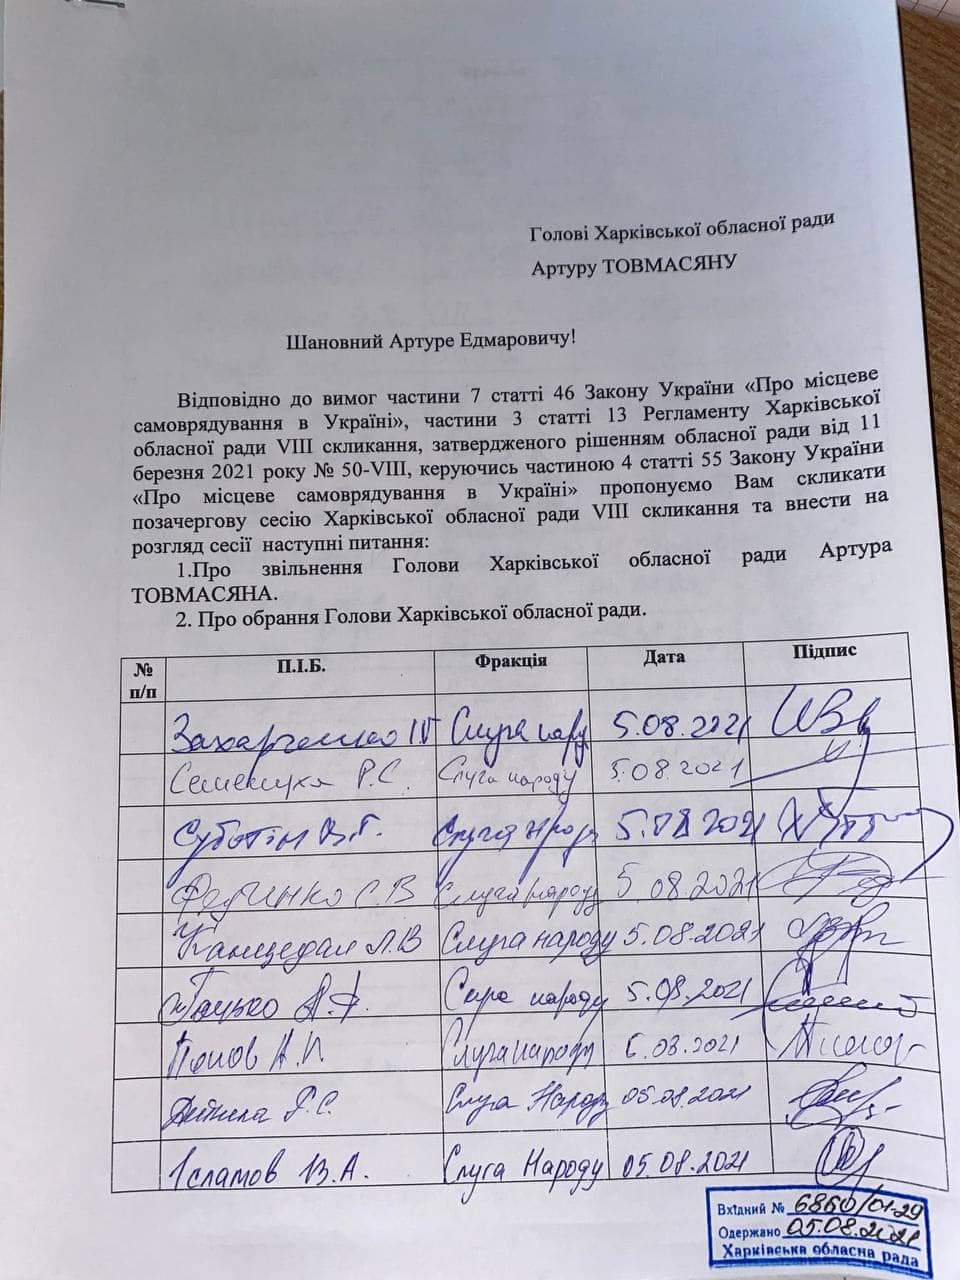 Голові Харківської обласної ради
Артуру ТОВМАСЯНУ
Шановний Артуре Едмаровичу!
Відповідно до вимог частини 7 статті 46 Закону України «Про місцеве
самоврядування в Україні», частини 3 статті 13 Регламенту Харківської
обласної ради VIII скликання, затвердженого рішенням обласної ради від 11
березня 2021 року № 50-VIII, керуючись частиною 4 статті 55 Закону України
«Про місцеве самоврядування в Україні» пропонуємо Вам скликати
позачергову сесію Харківської обласної ради VIII скликання та внести на
розгляд сесії наступні питання:
1.Про звільнення Голови Харківської обласної ради Артура
ТОВМАСЯНА.
2. Про обрання Голови Харківської обласної ради.
№ п/п П.І.Б. Фракція Дата Підпис
Захарченко Слуга 5.08.2021
Семенуха Р.С. Слуга народу 5.08.2021
Суботін В.Г. Слуга 5.08.2021
С.В Слуга народу 5.08.2021
Канцедал Л.В Слуга народу 5.08.2021
Гацько народу 5.08.2021
Попов А.П. Слуга народу 08.2021
Р.С. Слуга Народу 05.08.2021
Ісламов В.А. Слуга Народу 05.08.2021
Вхідний № 6860/01-29
Одержано 05.08.2021
Харківська обласна рада